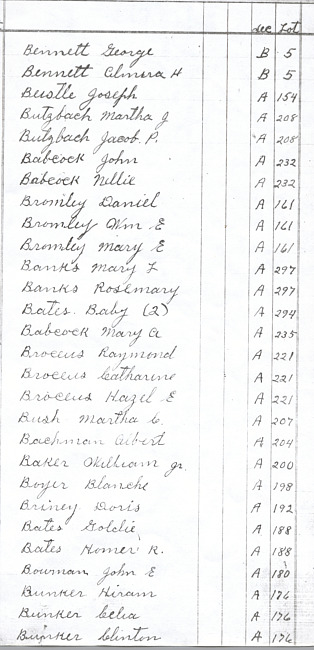 Sec Lot
Bennett George B 5
Bennett Elmira H B 5
Beistle Joseph A 154
Butzbach Martha J A 208
Butzbach Jacob P. A 208
Babcock John A 232
Babcock Nellie A 232
Bromley Daniel A 161
Bromley Wm E A 161
Bromley Mary E A 161
Banks Mary F A 297
Banks Rosemary A 297
Bates. Baby (2) A 294
Babcock Mary A A 235
Broceus Raymond A 221
Broceus Catharine A 221
Broceus Hazel E A 221
Bush Martha C. A 207
Bachman Albert A 204
Baker William Jr. A 200
Boyer Blanche A 198
Briney Doris A 192
Bates Goldie A 188
Bates Homer R. A 188
Bowman John E A 180
Bunker Hiram A 176
Bunker Celia A 176
Bunker Clinton A 176